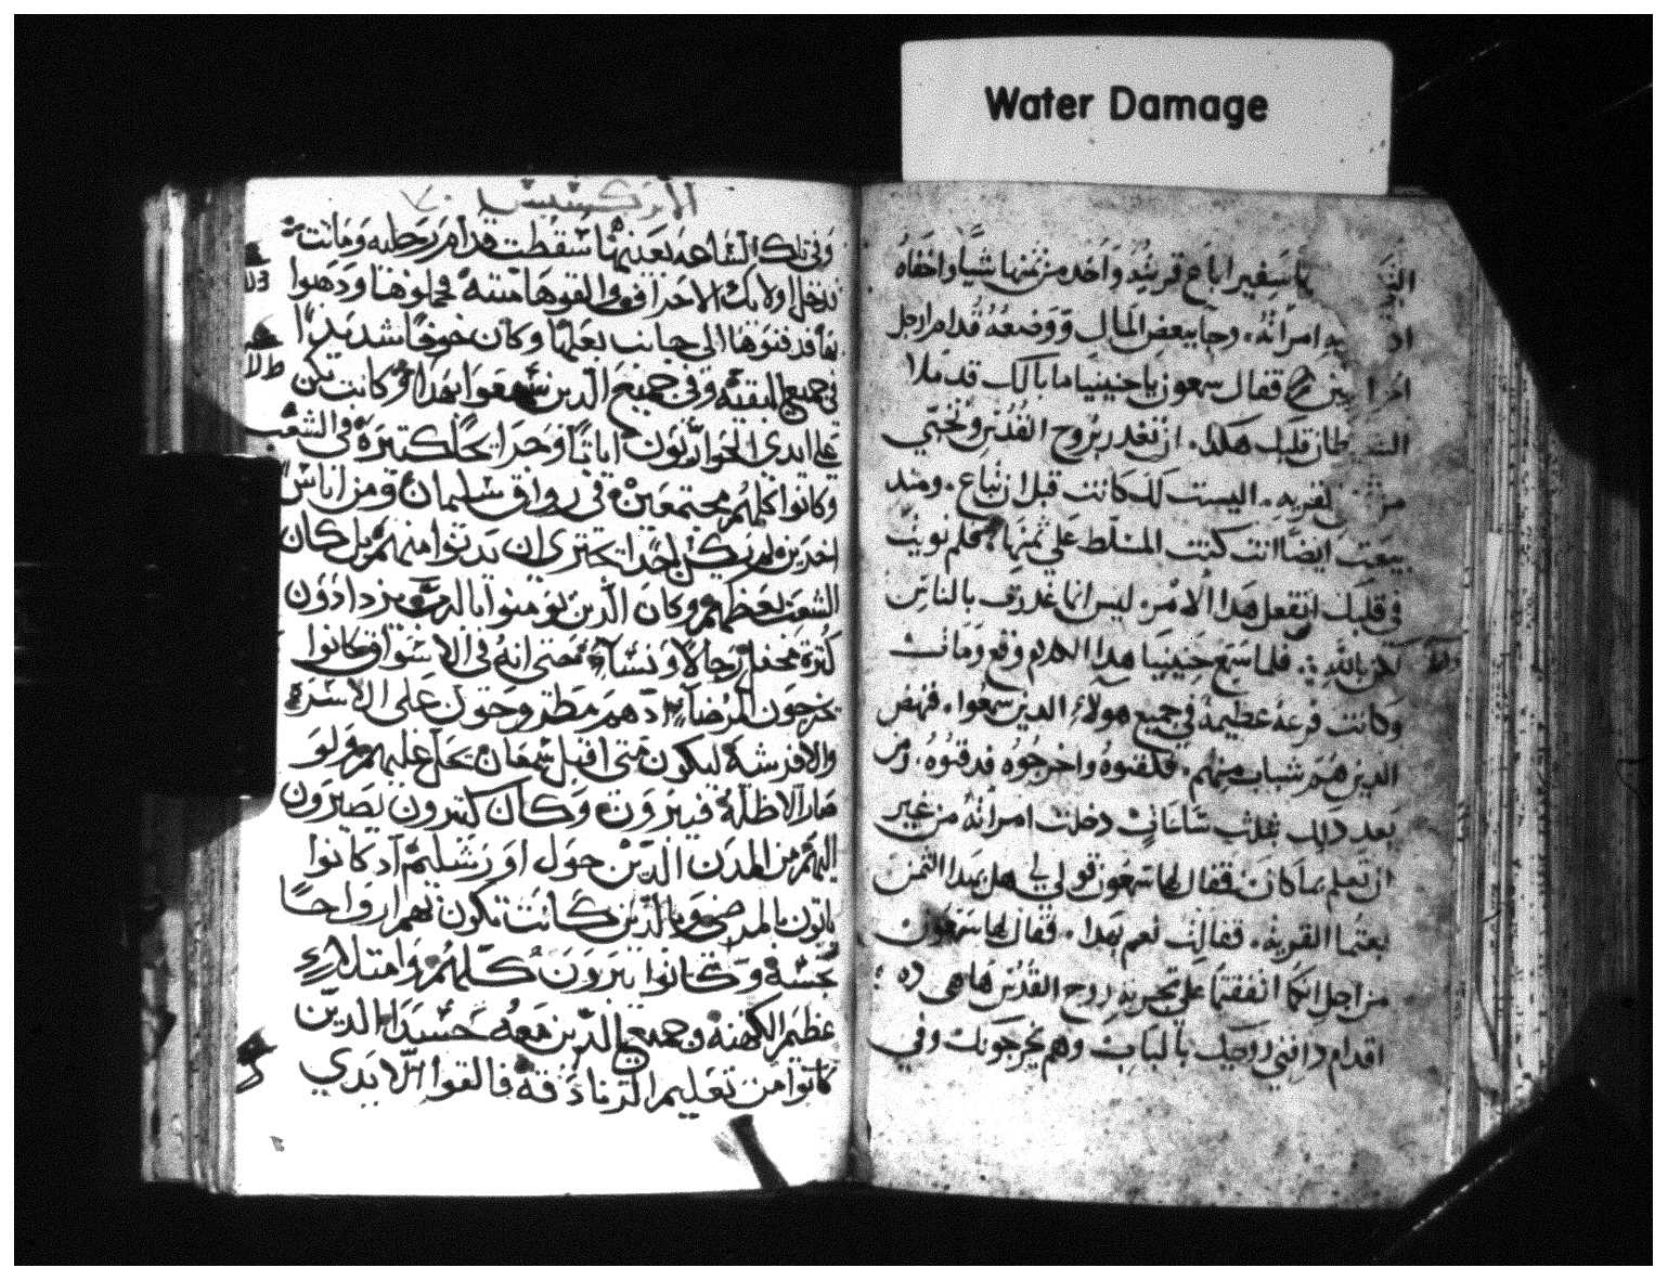 Water Damage
سفيرا باع قريته واخد من ثمنها شيا واخفاه
امراته. وجا ببعض المال ووضعه قدام ارجل
فقال سمعون يا حنينيا ما بالك قد ملا
قلبك هكدا. ان تغدر بروح القدس وتخبي
القريه. اليست لك كانت قبل ان تباع. ومند
بيعت ايضا انت كنت المسلط علي ثمنها. فلم نويت
في قلبك ان تفعل هدا الامر. ليس انما غدرت بالناس
لكن بالله. فلما سمع حنينيا هدا الكلام وقع ومات
وكانت فزعه عظيمه في جميع هولاء الدين سمعوا. فنهض
الدين هم شباب منهم. فكفنوه واخرجوه فدفنوه. ومن
بعد دلك بثلث ساعات دخلت امراته من غير
ان تعلم بما كان فقال لها سمعون قولي لي هل بهدا الثمن
بعتما القريه. فقالت نعم بهدا. فقال لها سمعون
من اجل انكما اتفقتما علي تجربه روح القدس ها هي ده
اقدام دافني زوجك بالباب وهم يخرجونك وفي
الابركسيس
وفي تلك الساعه بعينها سقطت قدام رجليه وماتت
فدخل اولايك الاحداث والفوها ميته فحملوها ودهبوا
بها فدفنوها الي جانب بعلها وكان خوفا شديدا
في جميع البيعه وفي جميع الدين سمعوا بهدا وكانت تكن
علي ايدي الحواريون اياتا وجرايحا كتيرة في الشعب
وكانوا كلهم مجتمعين في رواق سليمان ومن اناس
اخرين لم يكن احدا يجتري ان يدنوا منهم بل كان
الشعب يعظمهم وكان الدين يومنوا بالرب يزدادون
كترة محفل رجالا ونساء حتي انه في الاسواق كانوا
يخرجون المرضاء اد هم مطروحون علي الاسرة
والافرشة ليكون متي اقبل سمعان يحل عليهم ولو
صار الاظلة فيبرون وكان كتيرون يصيرون
اليهم من المدن الدين حول اورشليم اد كانوا
ياتون بالمرضي وبالدين كانت تكون بهم ارواحا
نجسة وكانوا يبرون كلهم وامتلاء
عظيم الكهنة وجميع الدين معه حسدا الدين
كانوا من تعليم الزنادقة فالقوا الايدي